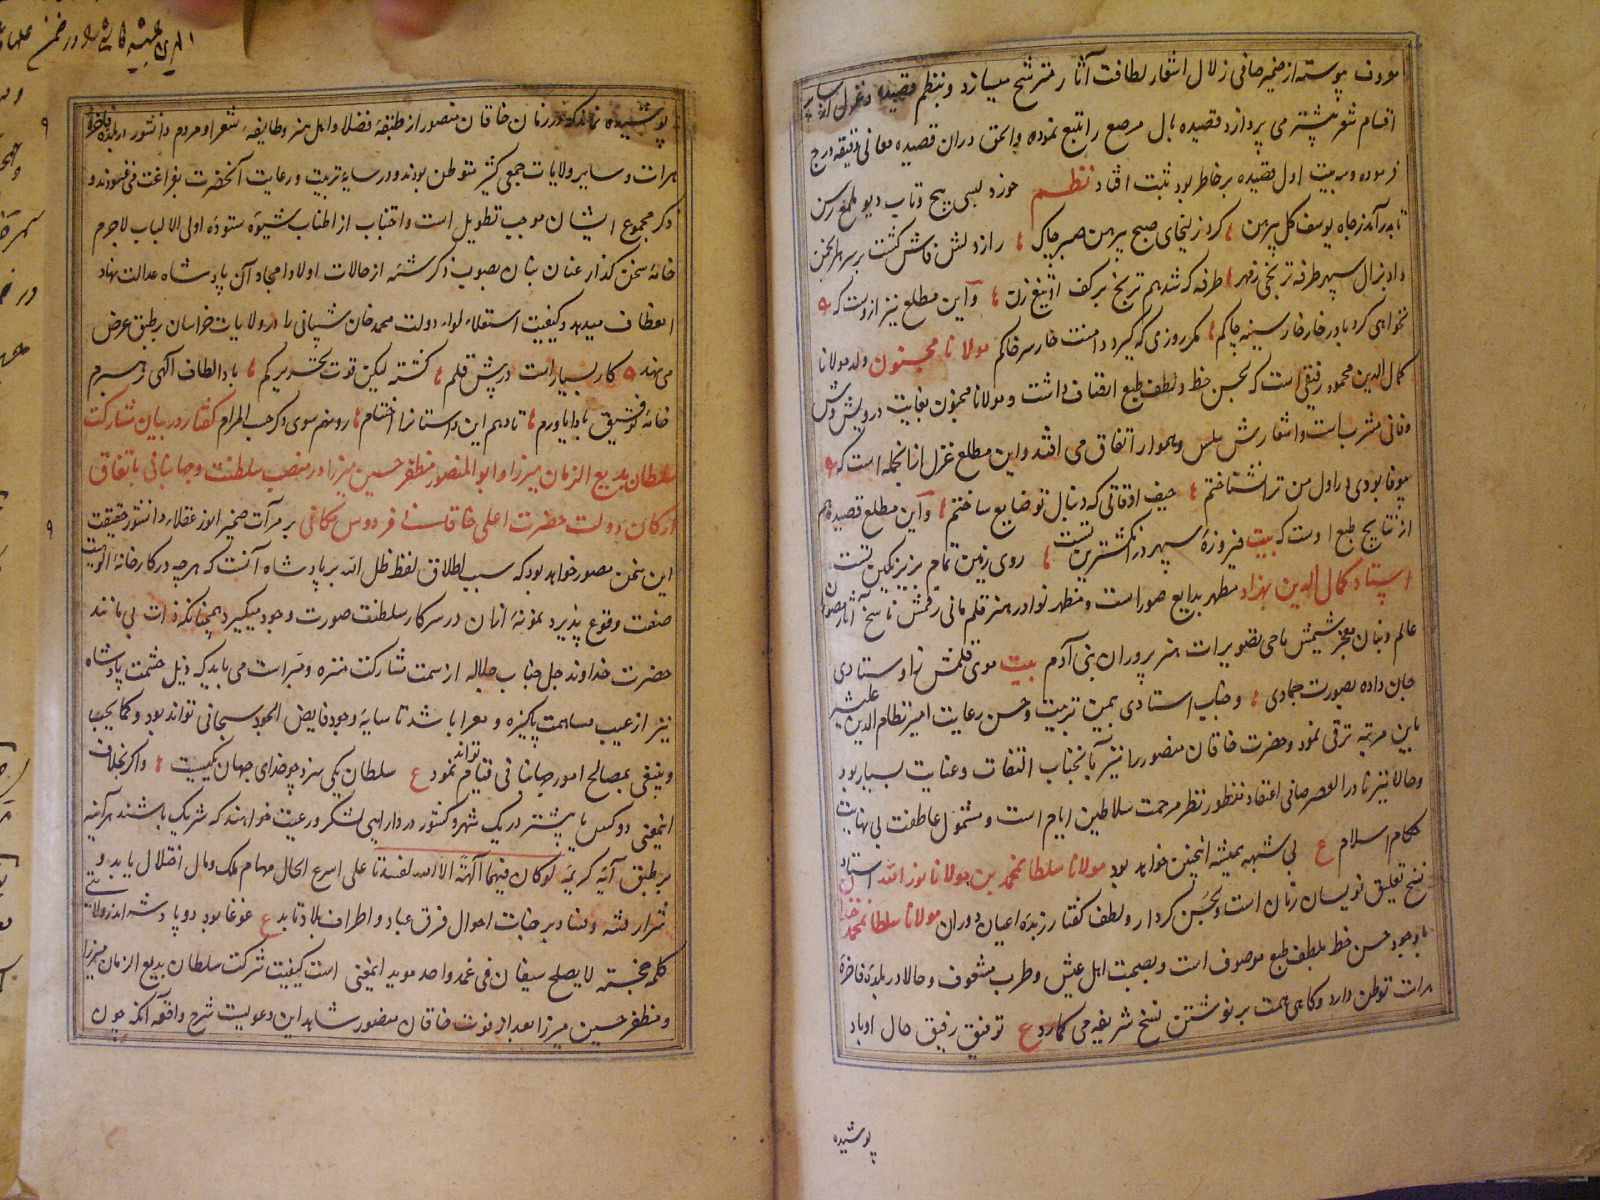 معروف پیوسته از ضمیر صافی زلال اشعار لطافت آثار مترشح میسازد و بنظم قصیده و غزل و سایر
اقسام شعر پشته می پردازد قصیده بال مرصع را تتبع نموده والحق دران قصیده معانی دقیقه درج
فرموده و سه بیت اول قصیده بر خاطر بود ثبت افتاد نظم خورد بسی پیچ و تاب دیو ملمع رسن
تا بدر آمد ز چاه یوسف گل پیرهن کرد زلیخای صبح پیرهن صبر چاک راز دلش فاش گشت بر سر هر انجمن
داد بزال سپهر طرفه ترنجی ز مهر طرفه که شد هم ترنج بر کف او تیغ زن و این مطلع نیز ازوست که
نخواهی کرد باور خار خار سینه چاکم مگر روزی که گیرد دامنت خار سر خاکم مولانا مجنون ولد مولانا
کمال الدین محمود رفیقی است که بحسن خط و لطف طبع اتصاف داشت و مولانا مجنون بغایت درویش وش
و فانی مشرب است و اشعارش سلس و هموار اتفاق می افتد و این مطلع غزل از انجمله است که
بیوفا بودی ز اول من ترا نشناختم حیف اوقاتی که دنبال تو ضایع ساختم و این مطلع قصیده هم
از نتایج طبع اوست که بیت فیروزه سپهر در انگشترین تست روی زمین تمام بزیر نگین تست
استاد کمال الدین بهزاد مظهر بدایع صور است و مظهر نوادر هنر قلم مانی رقمش ناسخ آثار مصوران
عالم و بنان معجز شیمش ماحی تصویرات هنرپروران بنی آدم بیت موی قلمش ز اوستادی
جان داده بصورت جمادی و جناب استادی بیمن تربیت و حسن رعایت امیر نظام الدین علیشیر
باین مرتبه ترقی نمود و حضرت خاقان منصور را نیز بآنجناب التفات و عنایت بسیار بود
و حالا نیز نادر العصر صافی اعتقاد منظور نظر مرحمت سلاطین ایام است و مشمول عاطفت بی نهایت
حکام اسلام ع بی شبهه همیشه اینچنین خواهد بود مولانا سلطان محمد بن مولانا نور الله استاد
نسخ تعلیق نویسان زمان است و بحسن کردار و لطف گفتار زبده اعیان دوران مولانا سلطان محمد خندان
باوجود حسن خط بلطف طبع موصوف است و بصحبت اهل عیش و طرب مشعوف و حالا در بلده فاخره
هرات توطن دارد و گاهی همت بر نوشتن نسخ شریفه می گمارد ع توفیق رفیق حال او باد
پوشیده
پوشیده نماند که در زمان خاقان منصور از طبقه فضلا و اهل هنر و طایفه شعرا و مردم دانشور در بلده فاخره
هرات و سایر ولایات جمعی کثیر متوطن بودند و در سایه تربیت و رعایت آنحضرت بفراغت می غنودند و
ذکر مجموع ایشان موجب تطویل است و اجتناب از اطناب شیوه ستوده اولی الالباب لاجرم
خامه سخن گذار عنان بنان بصوب ذکر شمه از حالات اولاد امجاد آن پادشاه عدالت نهاد
انعطاف میدهد و کیفیت استعلاء لواء دولت محمد خان شیبانی را در ولایات خراسان بر طبق عرض
می نهد کار بسیار است در پیش قلم گشته لیکن قوت تحریر کم باد الطاف الهی رهبرم
خامه توفیق بادا یاورم تا دهم این داستانرا اختتام رو نهم سوی دگر حسب المرام گفتار در بیان مشارکت
سلطان بدیع الزمان میرزا و ابو المنصور مظفر حسین میرزا در منصب سلطنت و جهانبانی باتفاق
ارکان دولت حضرت اعلی خاقانی فردوس مکانی بر مرآت ضمیر انور عقلاء دانشور حقیقت
این سخن مصور خواهد بود که سبب اطلاق لفظ ظل الله بر پادشاه آنست که هرچه در کارخانه الوهیت
صفت وقوع پذیرد نمونه ازان در سرکار سلطنت صورت وجود میگیرد همچنانکه ذات بی مانند
حضرت خداوند جل جناب جلاله از سمت مشارکت منزه و مبراست می باید که ذیل حشمت پادشاه
نیز از عیب مساهمت پاکیزه و معرا باشد تا سایه وجود فایض الجود سبحانی تواند بود و کما یجب
وینبغی بمصالح امور جهانبانی قیام تواند نمود ع سلطان یکی سزد چو خدای جهان یکیست و اگر بخلاف
اینمعنی دو کس یا بیشتر در یک شهر و کشور در دارایی لشکر و رعیت خواهند که شریک باشند هر آینه
بر طبق آیه کریمه لوکان فیهما آلهة الا الله لفسدتا علی اسرع الحال مهام ملک و مال اختلال یابد و
شرار فتنه و فساد بر جنبات احوال فرق عباد و اطراف بلاد تابد ع غوغا بود دو پادشه اندر ولایتی
کلمه خجسته لا یصلح سیفان فی غمد واحد موید اینمعنی است کیفیت شرکت سلطان بدیع الزمان میرزا
و مظفر حسین میرزا بعد از فوت خاقان منصور شاهد این دعویست شرح واقعه آنکه چون